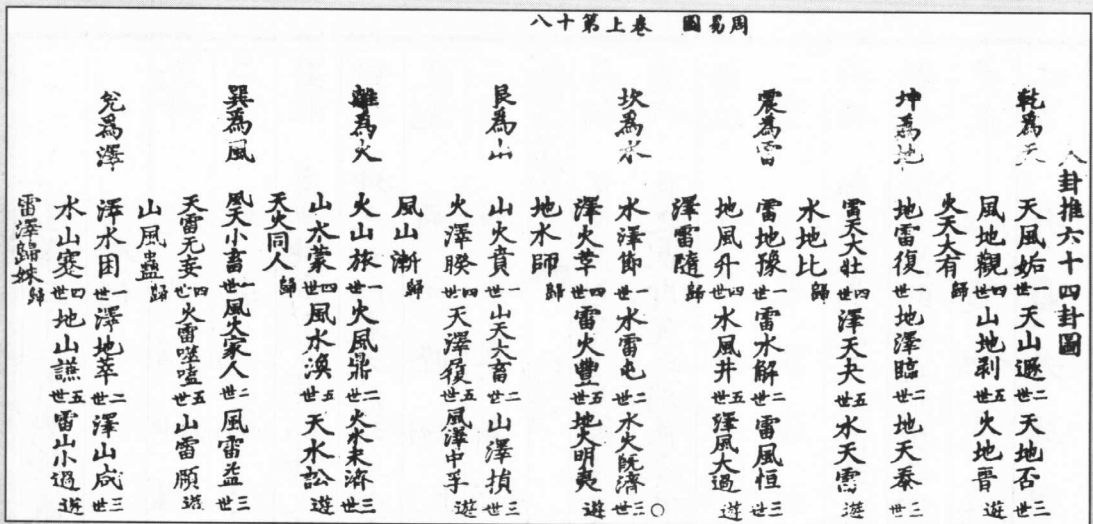 周易圖 卷上第十八
八卦推六十四卦圖
乾為天 天風姤一世天山遯二世天地否三世
風地觀四世山地剥五世火地晉遊
火天大有歸
坤為地 地雷復一世地澤臨二世地天泰三世
雷天大壯四世澤天夬五世水天需遊
水地比歸
震為雷 雷地豫一世雷水解二世雷風恒三世
地風升四世水風井五世澤風大過遊
澤雷隨歸
坎為水 水澤節一世水雷屯二世水火既濟三世
澤火革四世雷火豐五世地火明夷遊
地水師歸
艮為山 山火賁一世山天大畜二世山澤損三世
火澤睽四世天澤復五世風澤中孚遊
風山漸歸
離為火 火山旅一世火風鼎二世火水未濟三世
山水蒙四世風水渙五世天水訟遊
天火同人歸
巽為風 風天小畜一世風火家人二世風雷益三世
天雷无妄四世火雷噬嗑五世山雷頤遊
山風蠱歸
兌為澤 澤水困一世澤地萃二世澤山咸三世
水山蹇四世地山謙五世雷山小過遊
雷澤歸妹歸